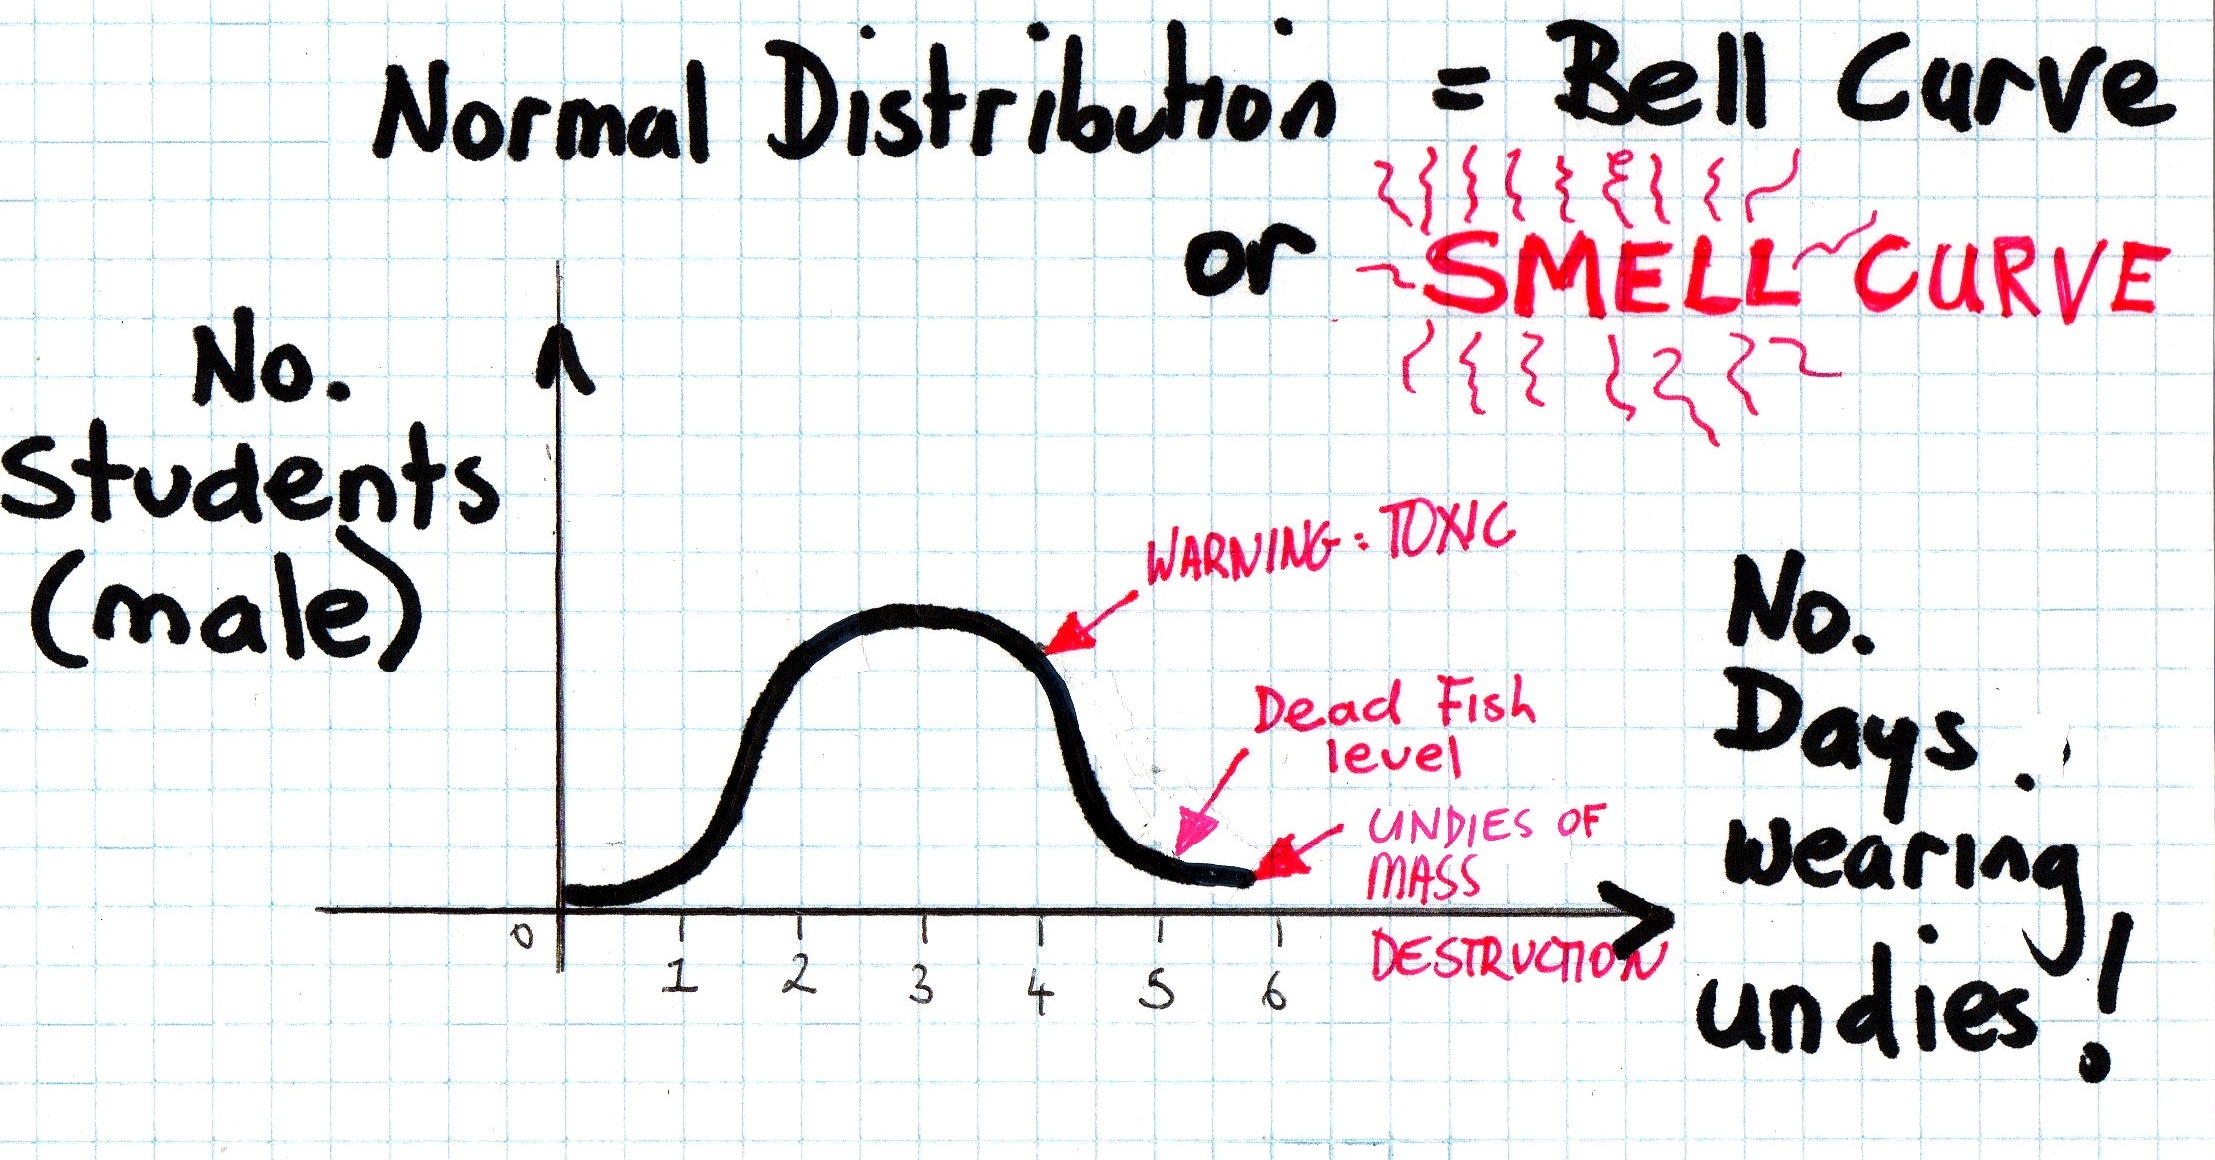 Normal Distribution = Bell Curve
or SMELL CURVE
No.
Students
(male)
WARNING: TOXIC
Dead Fish
level
UNDIES OF
MASS
DESTRUCTION
No.
Days
wearing
undies!
0 1 2 3 4 5 6